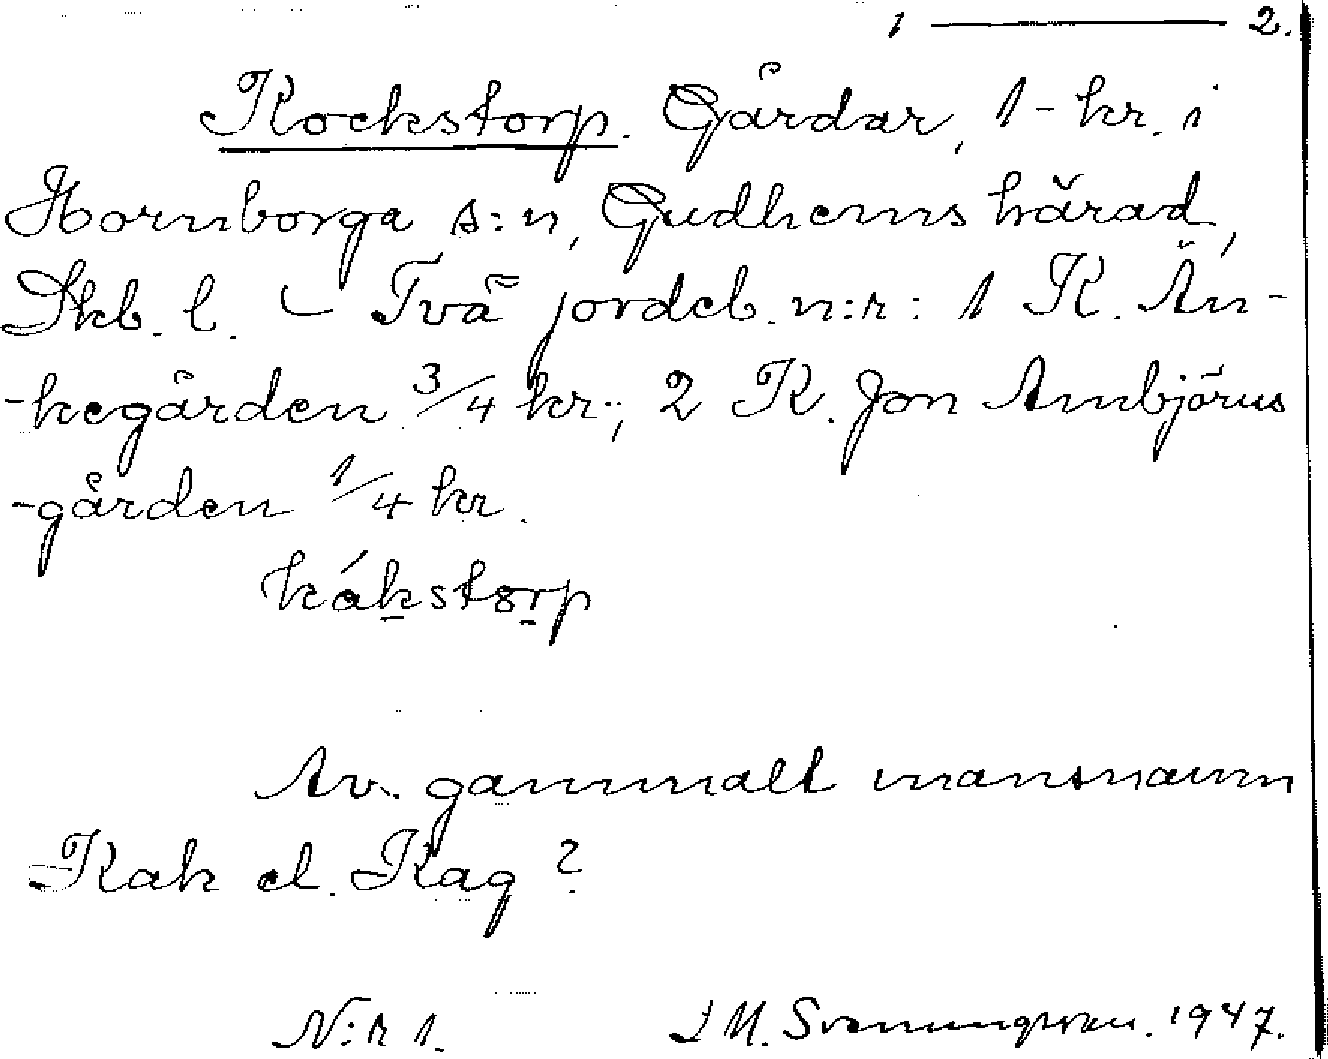 1 — 2.
Kockstorp. Gårdar, 1-kr. i
Hornborga s:n, Gudhems härad,
Skb. l. – Två jordeb. n:r: 1 K. Än-
-kegården 3/4 kr.; 2 K. Jon Ambjörns
-gården 1/4 kr.
kákstorp
Av gammalt mansnamn
Kak el. Kag?
N:r 1. J M. Svenungsson. 1947.